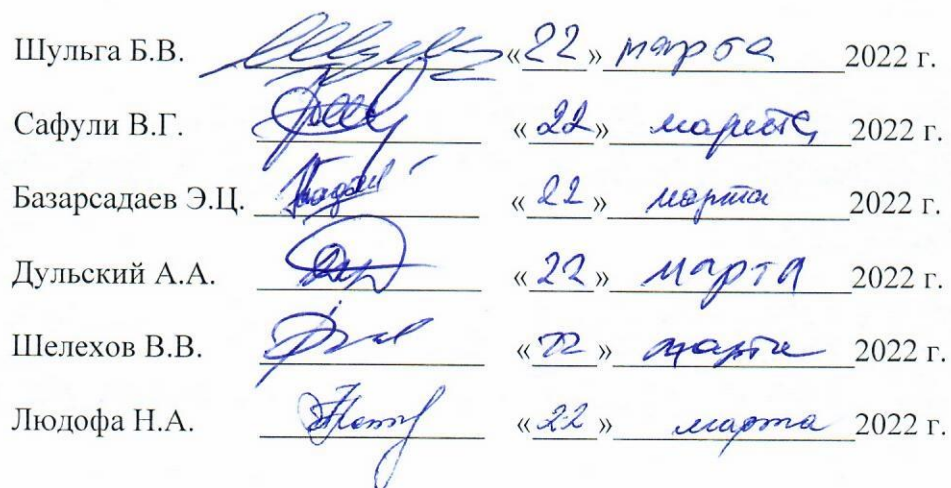 Шульга Б.В. «22» марта 2022 г.
Сафули В.Г. «22» марта 2022 г.
Базарсадаев Э.Ц. «22» марта 2022 г.
Дульский А.А. «22» марта 2022 г.
Шелехов В.В. «22» марта 2022 г.
Людофа Н.А. «22» марта 2022 г.